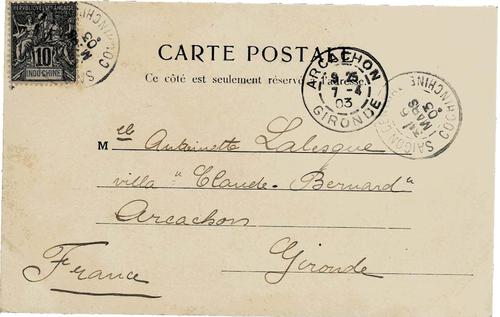 RÉPUBLIQUE FRANÇAISE
10
INDO-CHINE
SAIGON
MARS
03
COCHINCHINE
CARTE POSTALE
Ce côté est seulement réservé à l'adresse
ARCACHON
9 25
7 - 4
03
GIRONDE
SAIGON
MARS
03
COCHINCHINE
Mlle Antoinette Lalesque
villa "Claude-Bernard"
Arcachon
Gironde
France